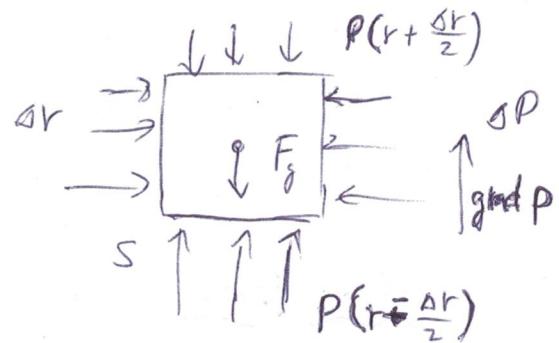 P(r + Δr/2)
Δr
F_g
ΔP
grad P
S
P(r - Δr/2)